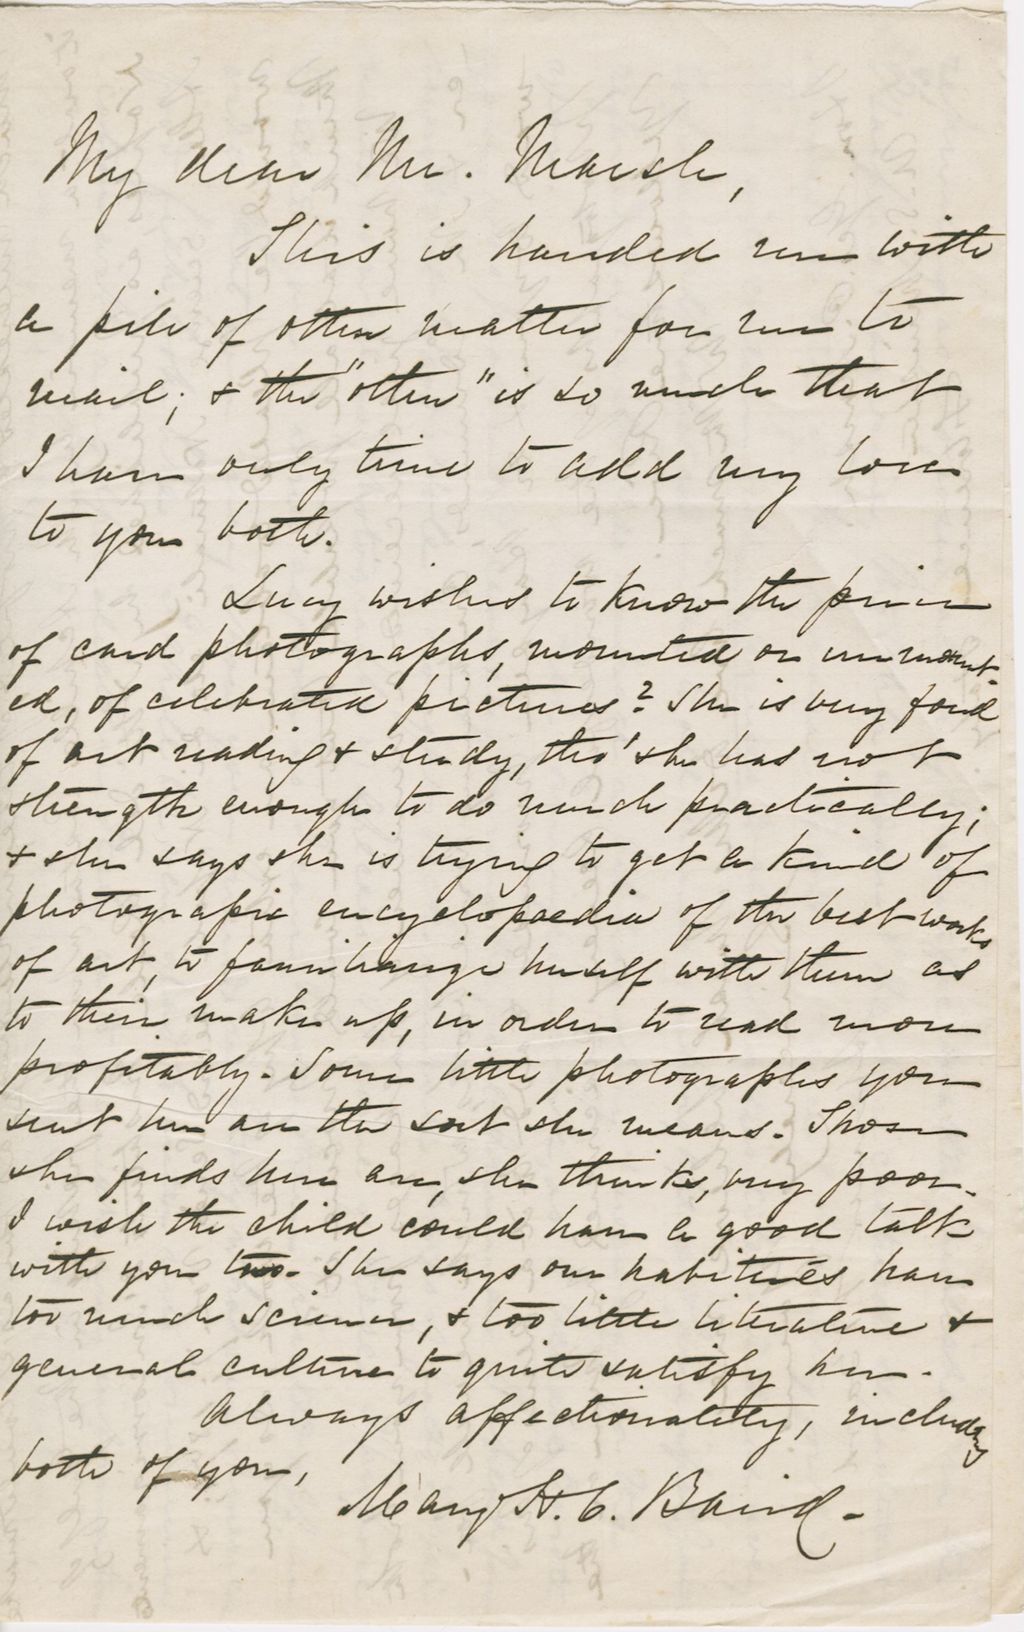 My dear Mr. Marsh,
This is handed me with
a pile of other matter for me to
mail; & the "other" is so much that
I have only time to add my love
to you both.
Lucy wishes to know the price
of card photographs, mounted or unmount-
ed, of celebrated pictures? She is very fond
of art reading & study, tho' she has not
strength enough to do much practically;
& she says she is trying to get a kind of
photografic encyclopaedia of the best works
of art, to familiarize herself with them as
to their make up, in order to read more
profitably. Some little photographs you
sent her are the sort she means. Those
she finds here are, she thinks, very poor.
I wish the child could have a good talk
with you two. She says our habitués have
too much science, & too little literature &
general culture to quite satisfy her.
Always affectionately, including
both of you,
Mary H. C. Baird.